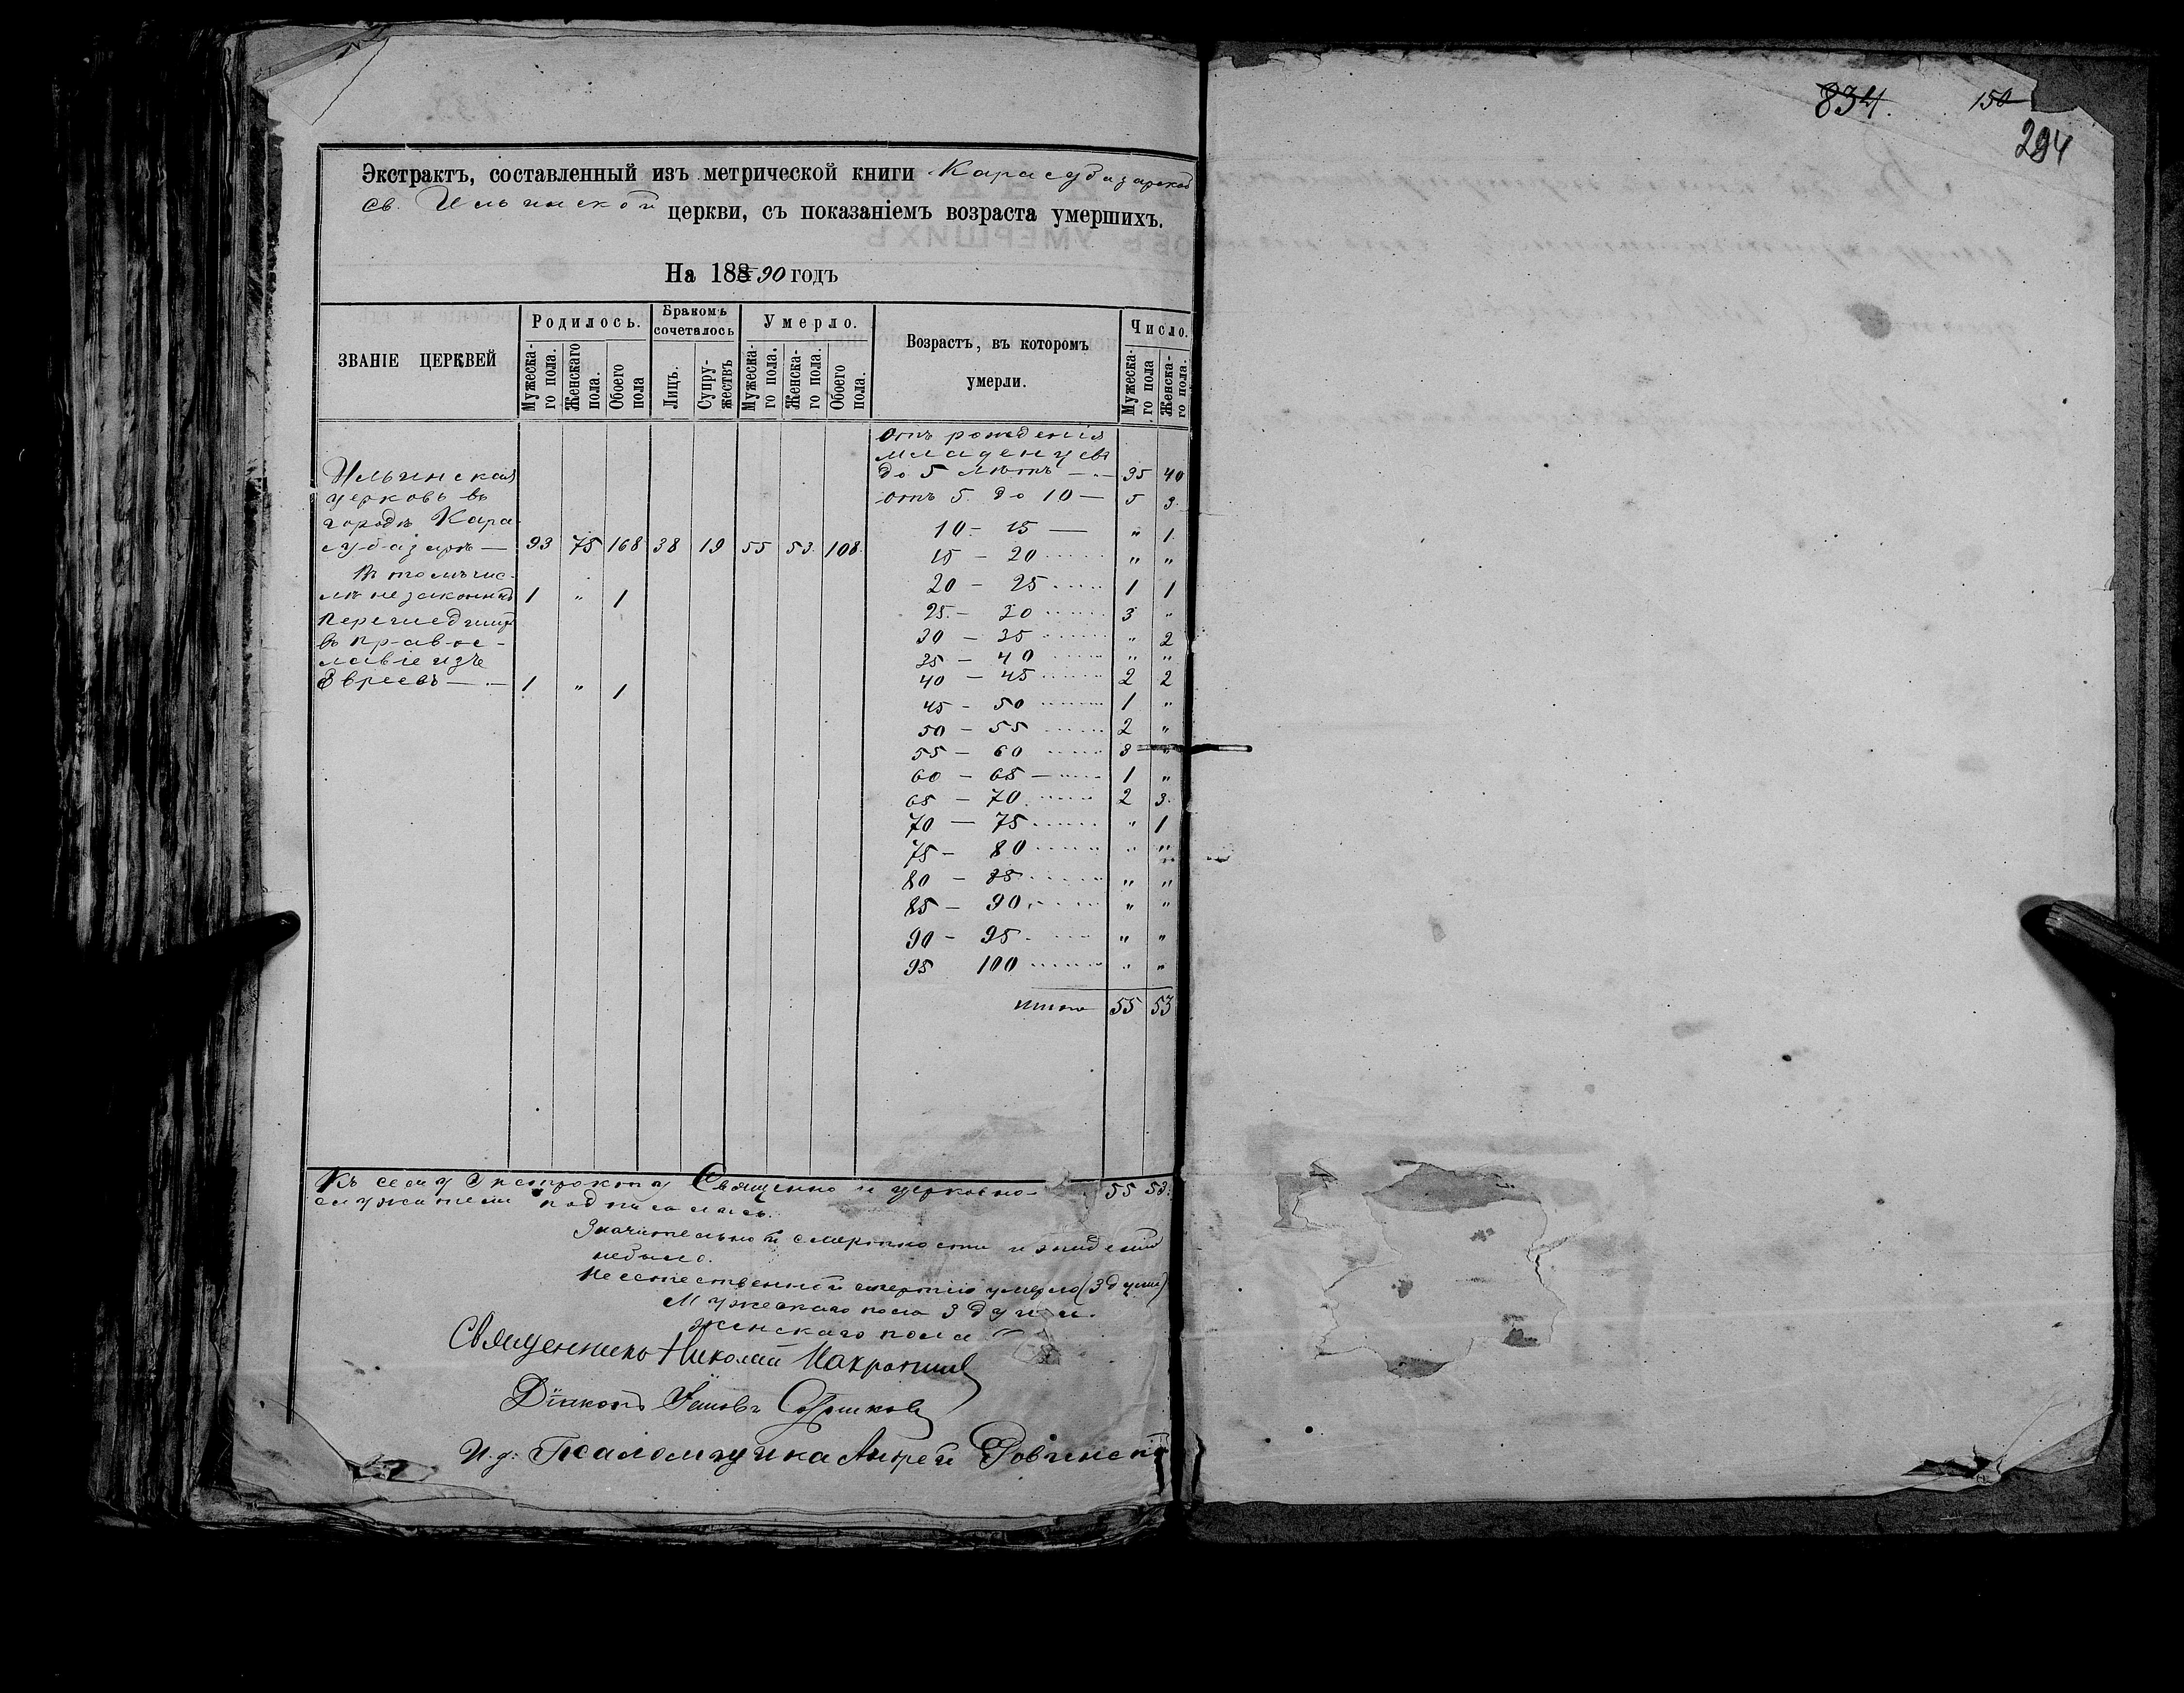 834. 150
294
Экстрактъ, составленный изъ метрической книги Карасубазарской
Св. Ильинской церкви, съ показаніемъ возраста умершихъ.
На 188 90 годъ
ЗВАНІЕ ЦЕРКВЕЙ
Родилось.
Мужеска-го пола.
Женскаго пола.
Обоего пола
Бракомъ сочеталось
Лицъ.
Супру-жествъ
Умерло.
Мужеска-го пола.
Женска-го пола.
Обоего пола.
Возрастъ, въ которомъ умерли.
Число.
Мужеска-го пола
Женска-го пола.
Ильинская
церковь въ
городѣ Кара-
субазарѣ — 93 75 168 38 19 55 53. 108.
Въ томъ чис-
лѣ незаконнно 1 " 1
Перешедшихъ
въ право-
славіе изъ
Евреевъ — 1 " 1
Отъ рожденія
младенцевъ
до 5 лѣтъ — 35 40
отъ 5. до 10 — 5 3.
10 - 15 — " 1
15 - 20 " "
20 - 25 1 1
25 - 30 3 "
30 - 35 " 2
35 - 40 " "
40 - 45 2 2
45 - 50 1 "
50 - 55 2 "
55 - 60 3 "
60 - 65 1 "
65 - 70 2 3.
70 - 75 " 1
75 - 80 " "
80 - 85 " "
85 - 90 " "
90 - 95 " "
95 100 " "
Итого 55 53
Къ сему Экстракту Священно и церковно- 55 53.
служители подписались.
Значительной смертности и эпидеміи
небыло.
Неестественной смертію умерло (3 души)
Мужескаго пола 3 души.
Женскаго пола "
Священникъ Николай
Діаконъ
И.д. Псаломщика Андрей